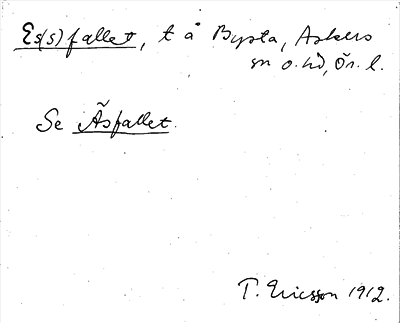 Es(s)fallet, t å Bysta, Askers
sn o. hd, Ör. l.
Se Åsfallet.
T. Ericsson 1912.